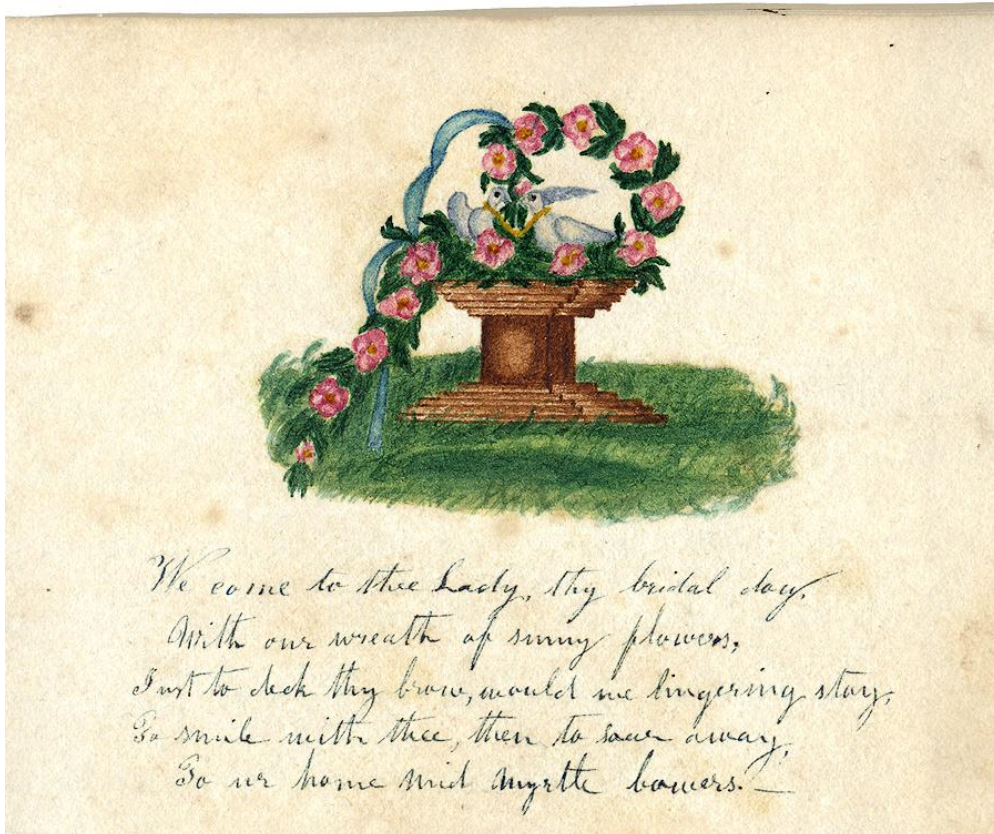 We come to thee Lady, thy bridal day,
With our wreath of sunny flowers,
Just to deck thy brow, would we lingering stay,
To smile with thee, then to soar away,
To our home mid myrtle bowers.—